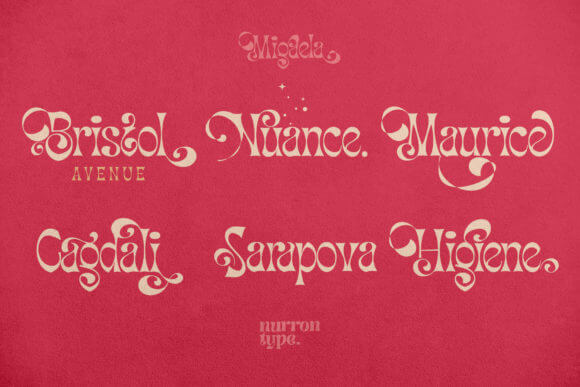 Migdela
Bristol
AVENUE
Nuance.
Maurice
Cagdali
Sarapova
Higiene
nurron
type.